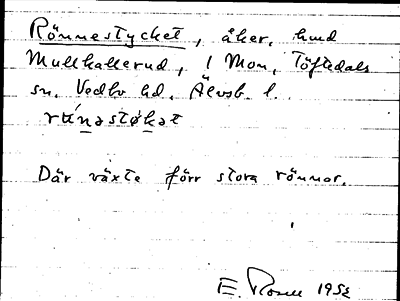 Rönnestycket, åker, hmd
Mullkallerud, 1 Mon, Töftedals
sn. Vedbo hd. Älvsb. l.
rǘnəstøkət
Där växte förr stora rönnar.
E. Rosen 1952